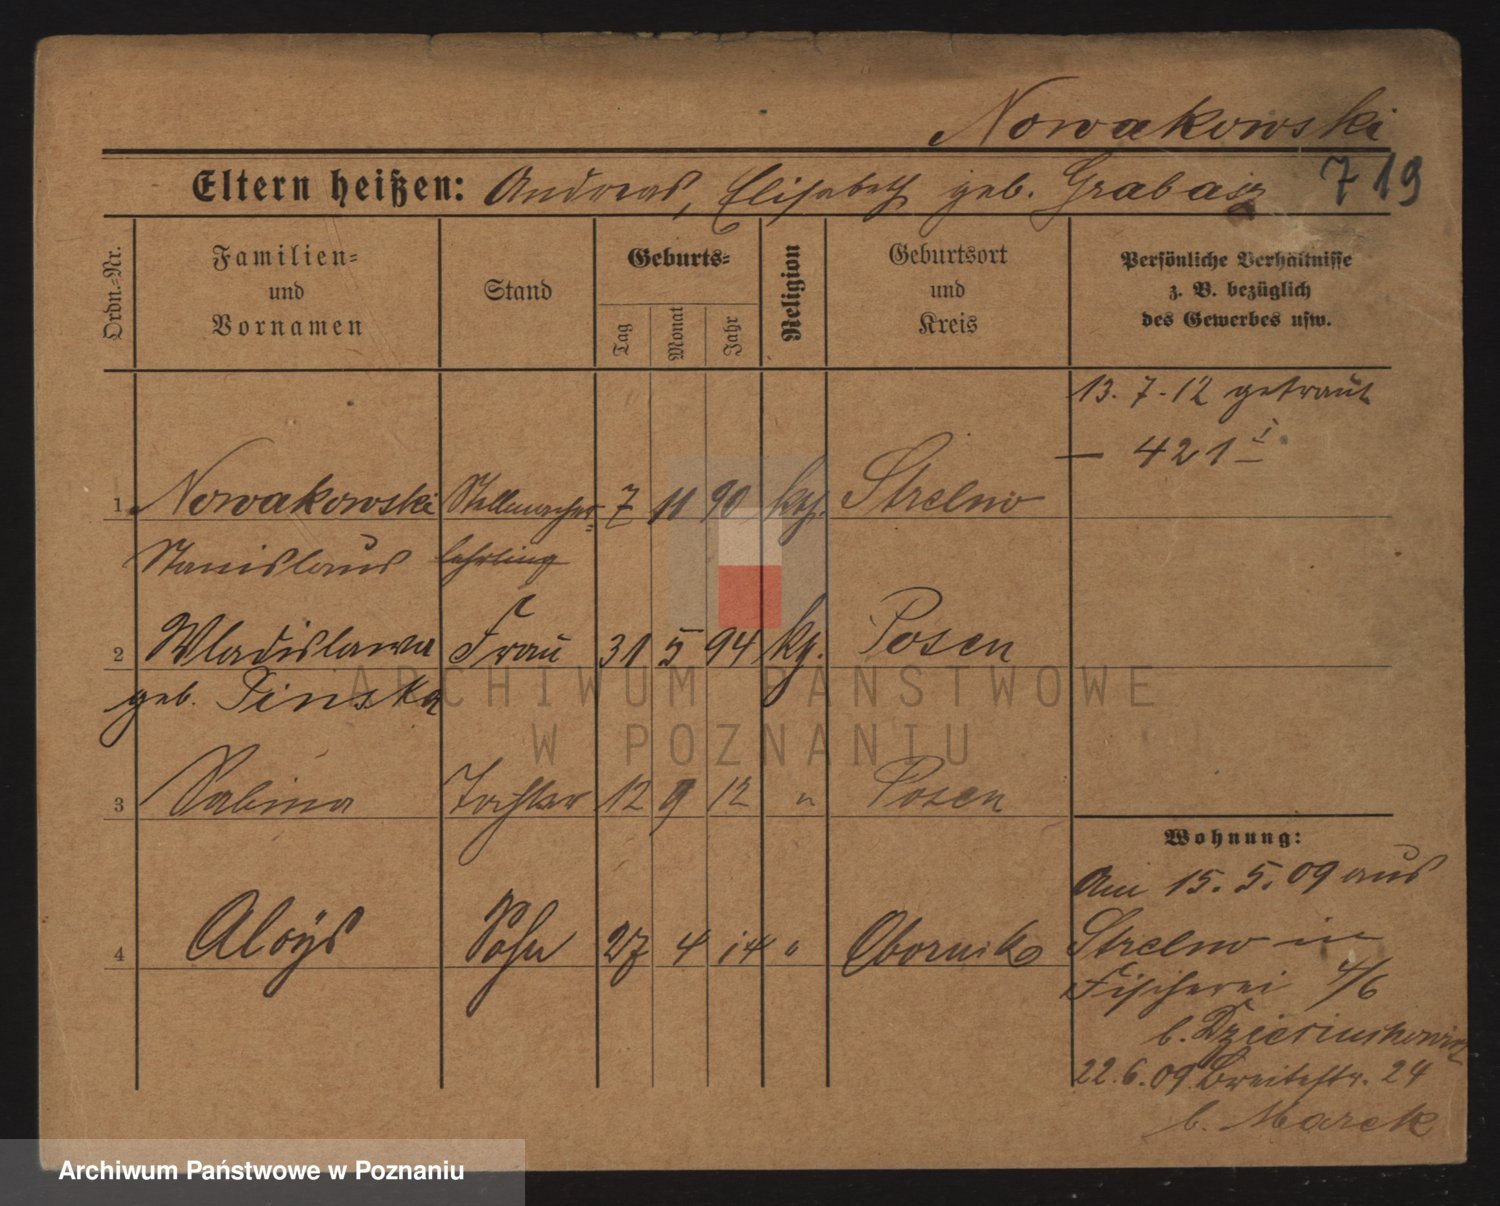 Nowakowski
Eltern heißen: Andreas, Elisabeth geb. Grabasz 719
Ordn.-Nr.
Familien-
und
Vornamen
Stand
Geburts-
Tag
Monat
Jahr
Religion
Geburtsort
und
Kreis
Persönliche Verhältnisse
z. B. bezüglich
des Gewerbes usw.
13. 7. 12 getraut
— 421 I
1 Nowakowski Stellmacher- 7 11 90 kth. Strelno
Stanislaus lehrling
2 Wladislawa Frau 31 5 94 kth. Posen
geb. Pinska
3 Sabina Tochter 12 9 12 " Posen
Wohnung:
Am 15. 5. 09 aus
4 Aloÿs Sohn 27 4 14 " Obornik Strelno in
Fischerei 4/6
b.
22. 6. 09. Breitestr. 24
b. Marek
ARCHIWUM PAŃSTWOWE
W POZNANIU
Archiwum Państwowe w Poznaniu